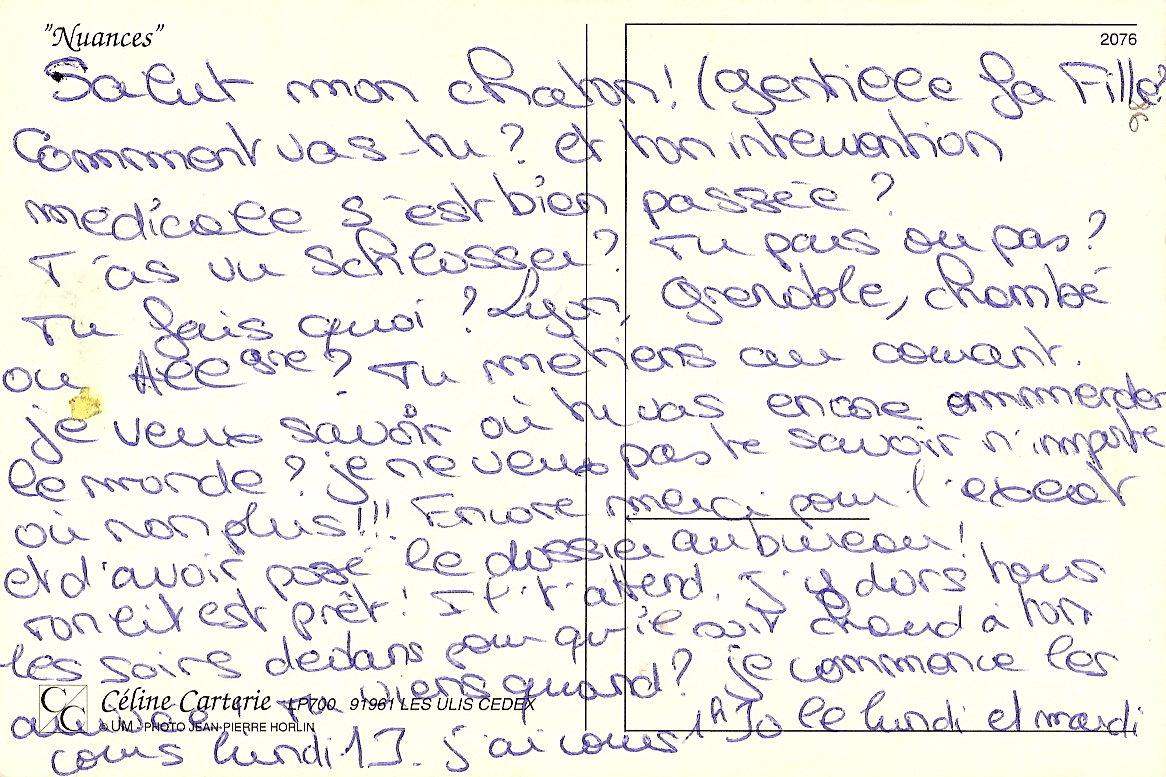 "Nuances"
2076
Salut mon chaton! (gentille la Fille?
Comment vas-tu? et ton intervention
médicale s'est bien passée?
T'as vu Schlosser? Tu pars ou pas?
Tu fais quoi? Lyon, Grenoble, chambé
ou Tu me tiens au courant.
je veux savoir où tu vas encore emmerder
le monde? je ne veux pas te savoir n'importe
où non plus!!! Encore merci pour l'exeat
et d'avoir passé le dossier au bureau!
ton lit est prêt! Il t'attend. J'y dors tous
les soirs dedans pour qu'il soit chaud à ton
tu viens quand? je commence les
cours lundi 13. j'ai cours 1h30 le lundi et mardi
CC Céline Carterie LP700 91961 LES ULIS CEDEX
© UM - PHOTO JEAN-PIERRE HORLIN